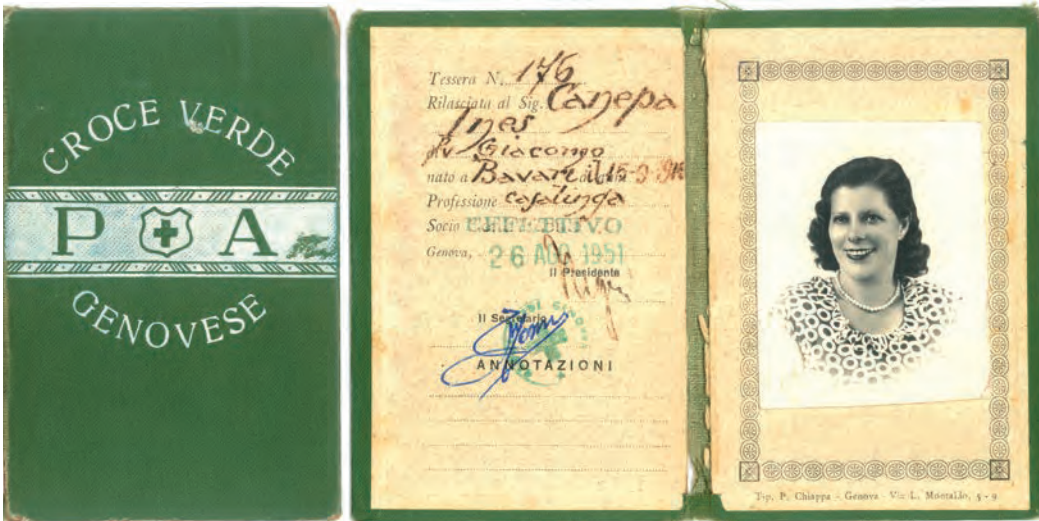 CROCE VERDE
P A
GENOVESE
Tessera N. 176
Rilasciata al Sig. Canepa
Ines
Giacomo
nato a Bavari il 15-9-
Professione casalinga
Socio EFFETTIVO
Genova, 26 AGO 1951
Il Presidente
Il Segretario
ANNOTAZIONI
Tip. P. Chiappa - Genova - Via L. Montaldo, 5-9